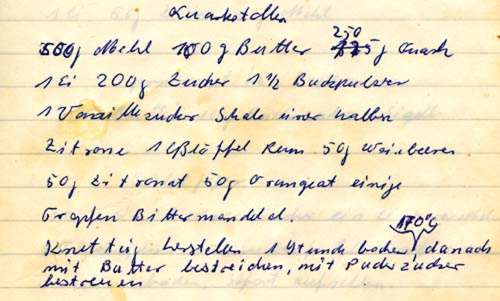 Quarkstollen
500g Mehl 100g Butter 250g Quark
1 Ei 200g Zucker 1 1/2 Backpulver
1 Vanillezucker Schale einer halben
Zitrone 1 Eßlöffel Rum 50g Weinbeeren
50g Zitronat 50g Orangeat einige
Tropfen Bittermandelöl.
Knetteig herstellen 1 Stunde backen 170°C, danach
mit Butter bestreichen, mit Puderzucker
bestreuen